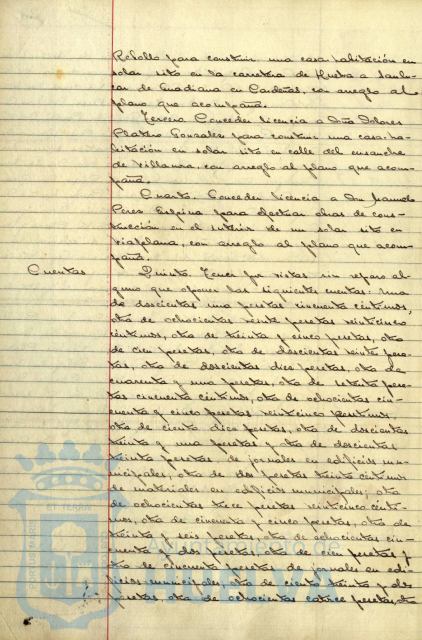 Rebollo para construir una casa habitación en
solar sito en la carretera de Huelva a Sanlu-
car de Guadiana en Cardeñas, con arreglo al
plano que acompaña.
Tercero. Conceder licencia a Doña Dolores
Platero Gonzalez para construir una casa-ha-
bitación en solar sito en calle del ensanche
de Villanova, con arreglo al plano que acom-
paña.
Cuarto. Conceder licencia a Don Manuel
Perez Espina para efectuar obras de cons-
trucción en el interior de un solar sito en
Viaplana, con arreglo al plano que acom-
paña.
Cuentas
Quinto. Tener por vistas sin reparo al-
guno que oponer las siguientes cuentas: Una
de doscientas una pesetas cincuenta céntimos,
otra de ochocientas veinte pesetas veinticinco
céntimos, otra de treinta y cinco pesetas, otra
de cien pesetas, otra de doscientas veinte pese-
tas, otra de doscientas diez pesetas, otra de
cuarenta y una pesetas, otra de setenta pese-
tas cincuenta céntimos, otra de ochocientas cin-
cuenta y cinco pesetas veinticinco céntimos,
otra de ciento diez pesetas, otra de doscientas
treinta y una pesetas y otra de doscientas
treinta pesetas de jornales en edificios mu-
nicipales, otra de dos pesetas treinta céntimos
de materiales en edificios municipales; otra
de ochocientas trece pesetas veinticinco cénti-
mos, otra de cincuenta y cinco pesetas, otra de
treinta y seis pesetas, otra de ochocientas cin-
cuenta y dos pesetas, otra de cien pesetas y
otra de cincuenta pesetas de jornales en edi-
ficios municipales, otra de ciento treinta y dos
pesetas, otra de ochocientas catorce pesetas, otra